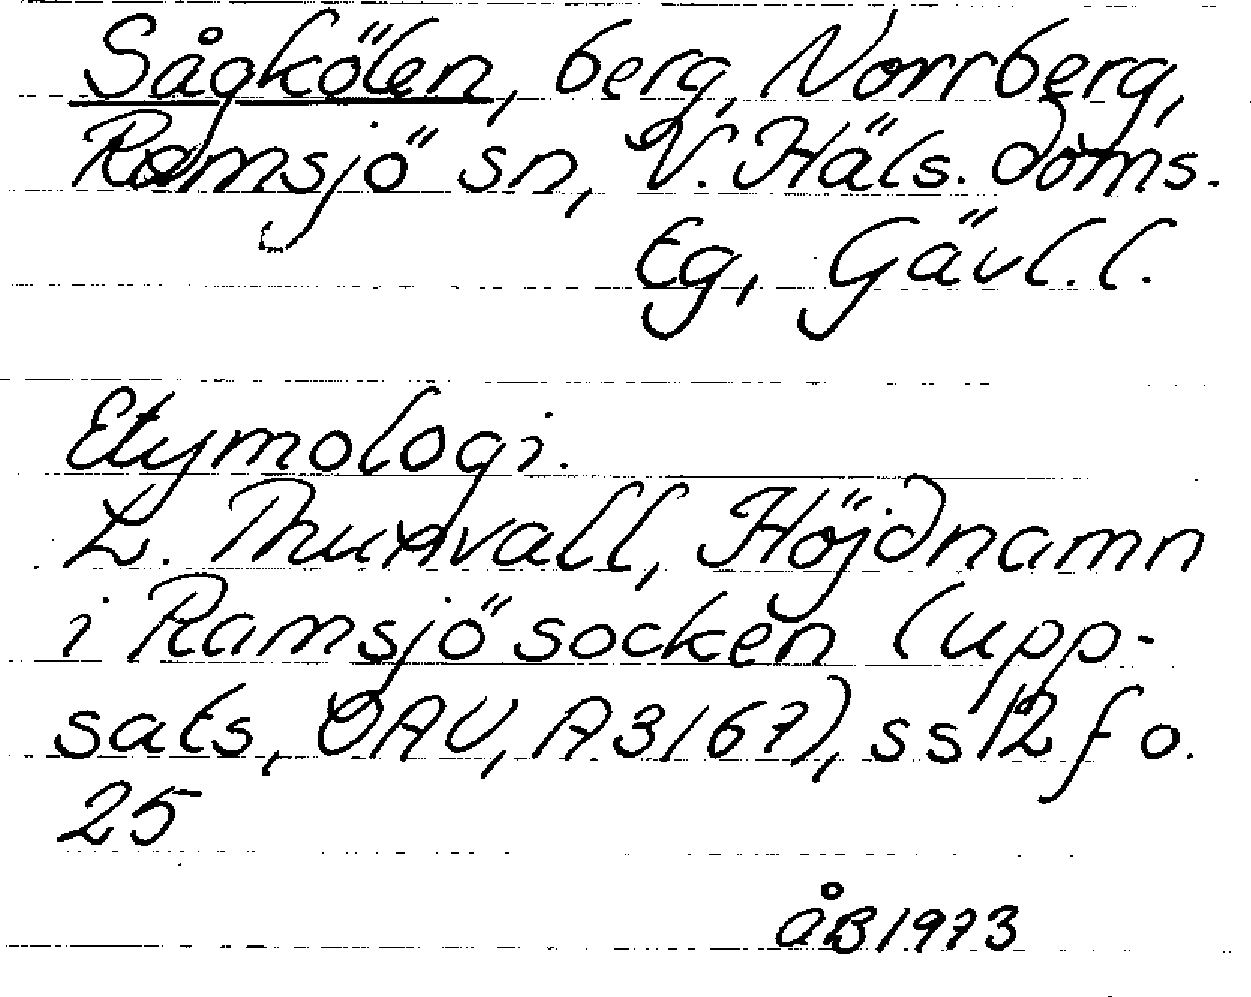 Sågkölen, berg, Norrberg,
Ramsjö sn, V. Häls. doms.
Eg, Gävl. l.
Etymologi.
L. Thunvall, Höjdnamn
i Ramsjö socken (upp-
sats, OAU, A 3167), ss 12 f o.
25
ÅB 1973